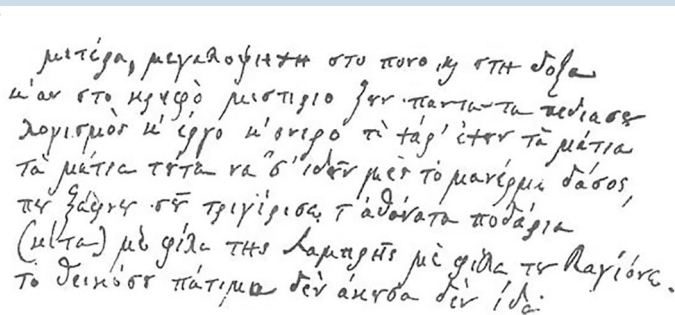 μιτέρα, μεγαλοψιχη στο πονο κ στη δοξα
κ'αν στο κρηφὸ μιστιριο ζουν παντα τα πεδιασου
λογισμὸς κ' έργο κ' ονιρο τὶ χάρ' έχουν τὰ μάτια
τὰ μάτια τουτα να σ' ιδοῦν μὲς τὸ πανέρμι δάσος,
που ξάφνου σοῦ τριγίρισε τ' αθάνατα ποδάρια
(κίτα) μὲ φίλα της Λαμπρῆς μὲ φίλα του Βαγιόνε.
τὸ θεικόσου πάτιμα δὲν άκουσα δὲν ίδα·